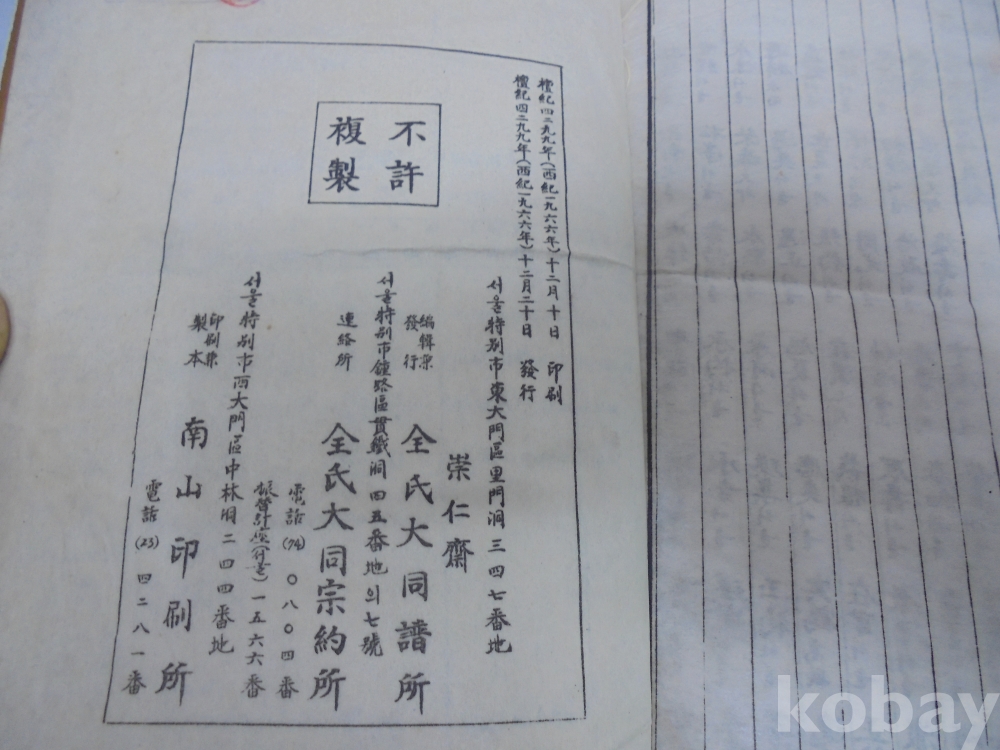 檀紀四二九九年(西紀一九六六年)十二月十日 印刷
檀紀四二九九年(西紀一九六六年)十二月二十日 發行
不許
複製
서울特別市東大門區里門洞三四七番地
崇仁齋
編輯兼
發行
全氏大同譜所
서울特別市鐘路區貫鐵洞四五番地의七號
連絡所
全氏大同宗約所
電話(74)〇八〇四番
振替計座(서울)一五六六番
서울特別市西大門區中林洞二四四番地
印刷兼
製本
南山印刷所
電話(23)四二八一番
kobay